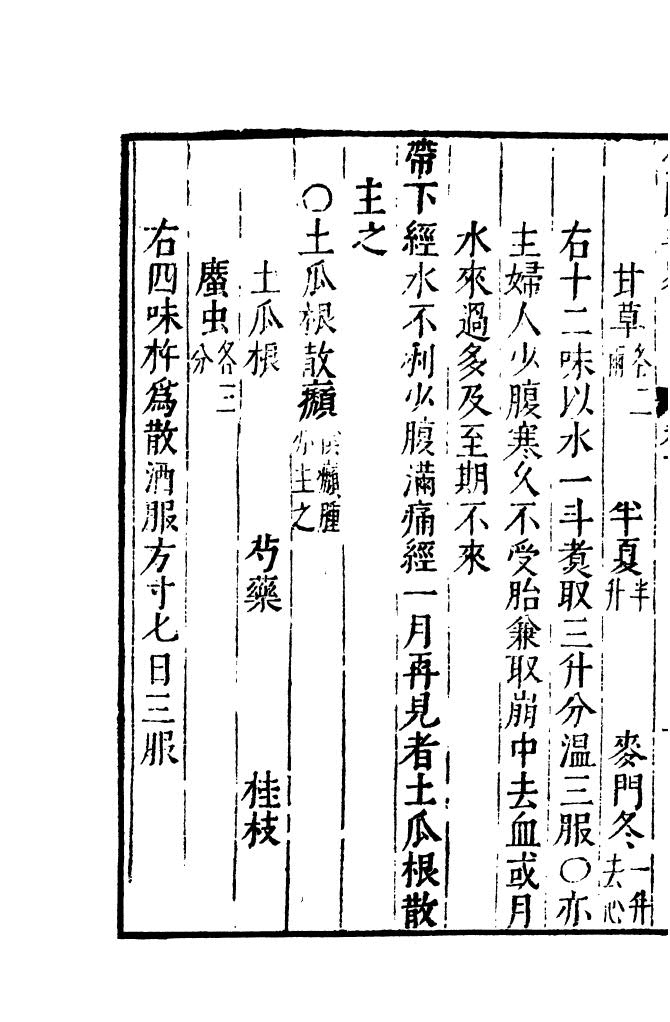 甘草各二兩　半夏半升　麥門冬一升去心
右十二味以水一斗煮取三升分温三服○亦
主婦人少腹寒久不受胎兼取崩中去血或月
水來過多及至期不來
帶下經水不利少腹滿痛經一月再見者土瓜根散
主之
○土瓜根散癩腫亦主之
土瓜根　芍藥　桂枝
䗪虫各三分
右四味杵爲散酒服方寸七日三服